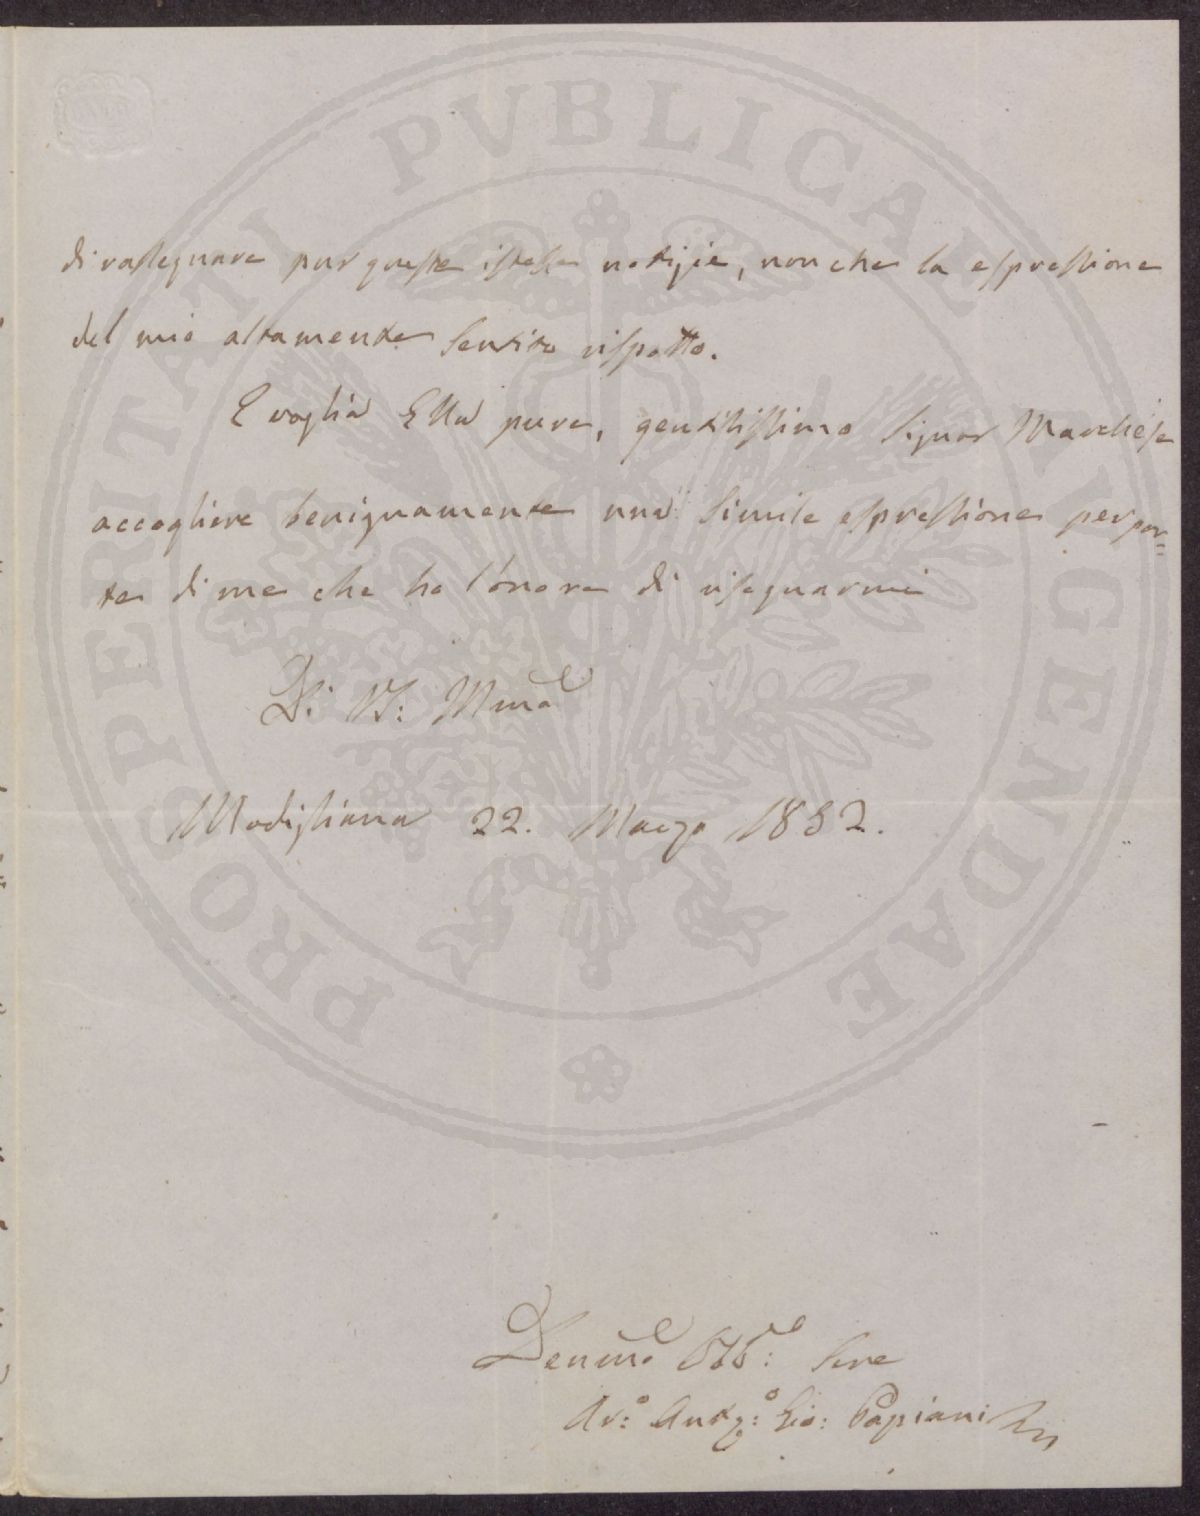 PROSPERITATI PVBLICAE AVGENDAE
di rassegnare pur queste istesse notizie, non che la espressione
del mio altamente sentito rispetto.
E voglia Ella pure, gentilissimo Signor Marchese
accogliere benignamente una simile espressione per par=
te di me che ho l'onore di risegnarmi
Di V: S:
Modigliana 22. Marzo 1852.
Devmo Obb: Serve
Av:o Ant:o Gio: Papiani